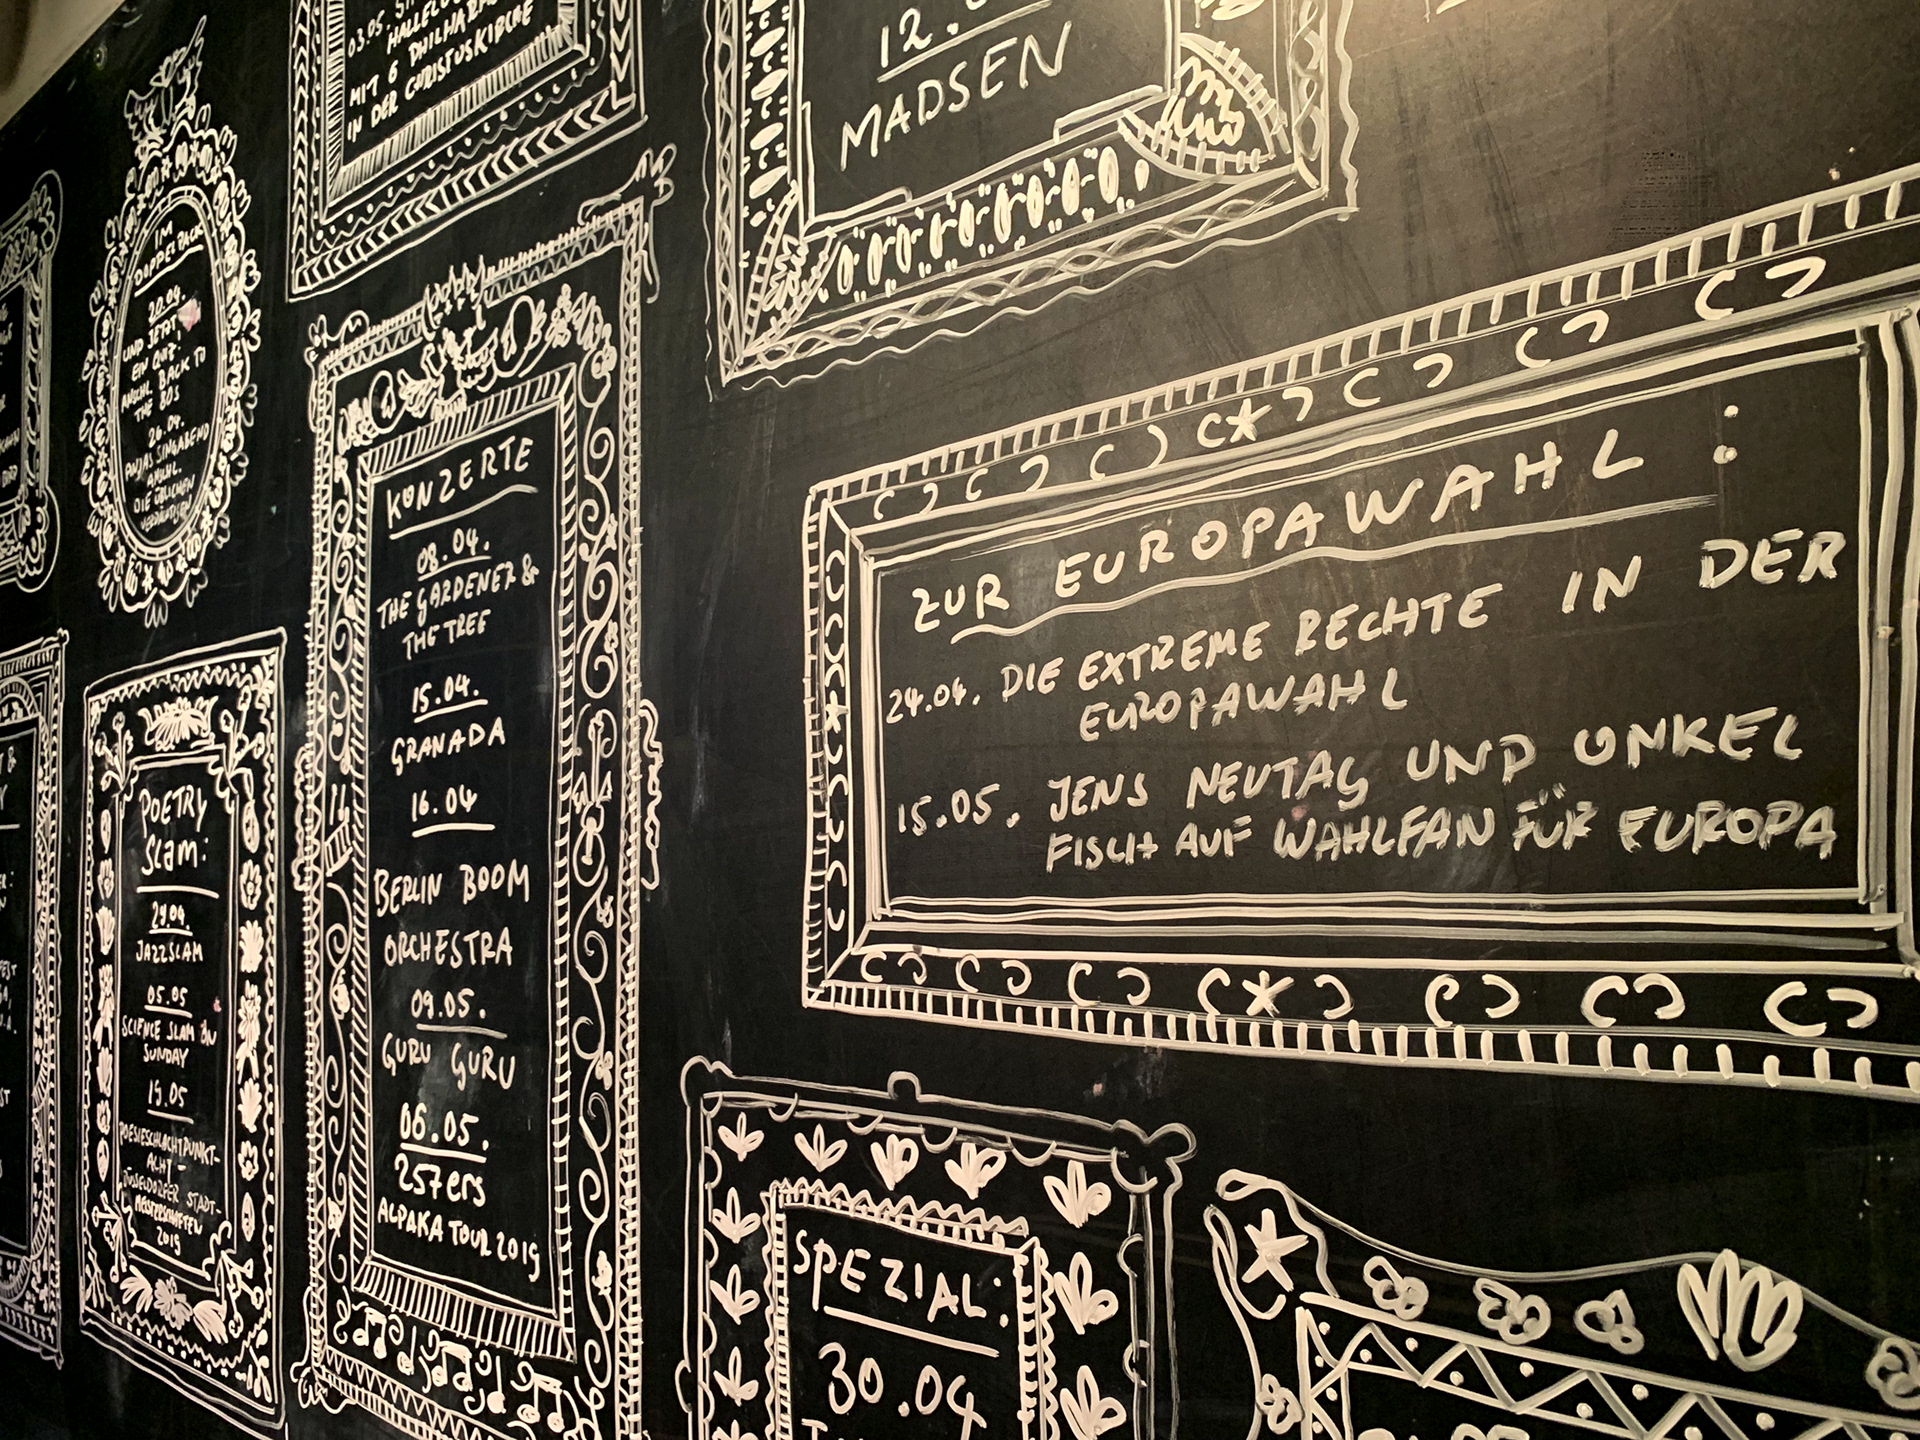 IM
DOPPELPACK
20.04.
UND JETZT
EIN QUIZ:
ANSCHL. BACK TO
THE 80S
26.04.
SINGABEND
03.05.
MIT 6 PHILHAR
IN DER CHRISTUSKIRCHE
12.
MADSEN
POETRY
SLAM:
29.04.
JAZZSLAM
05.05
SCIENCE SLAM ON
SUNDAY
19.05
POESIESCHLACHTPUNKT-
ACHT -
DÜSSELDORFER STADT-
MEISTERSCHAFTEN
2019
KONZERTE
08.04.
THE GARDENER &
THE TREE
15.04.
GRANADA
16.04
BERLIN BOOM
ORCHESTRA
09.05.
GURU GURU
06.05.
257ers
ALPAKA TOUR 2019
ZUR EUROPAWAHL:
24.04. DIE EXTREME RECHTE IN DER
EUROPAWAHL
15.05. JENS NEUTAG UND ONKEL
FISCH AUF WAHLFAN FÜR EUROPA
SPEZIAL:
30.04